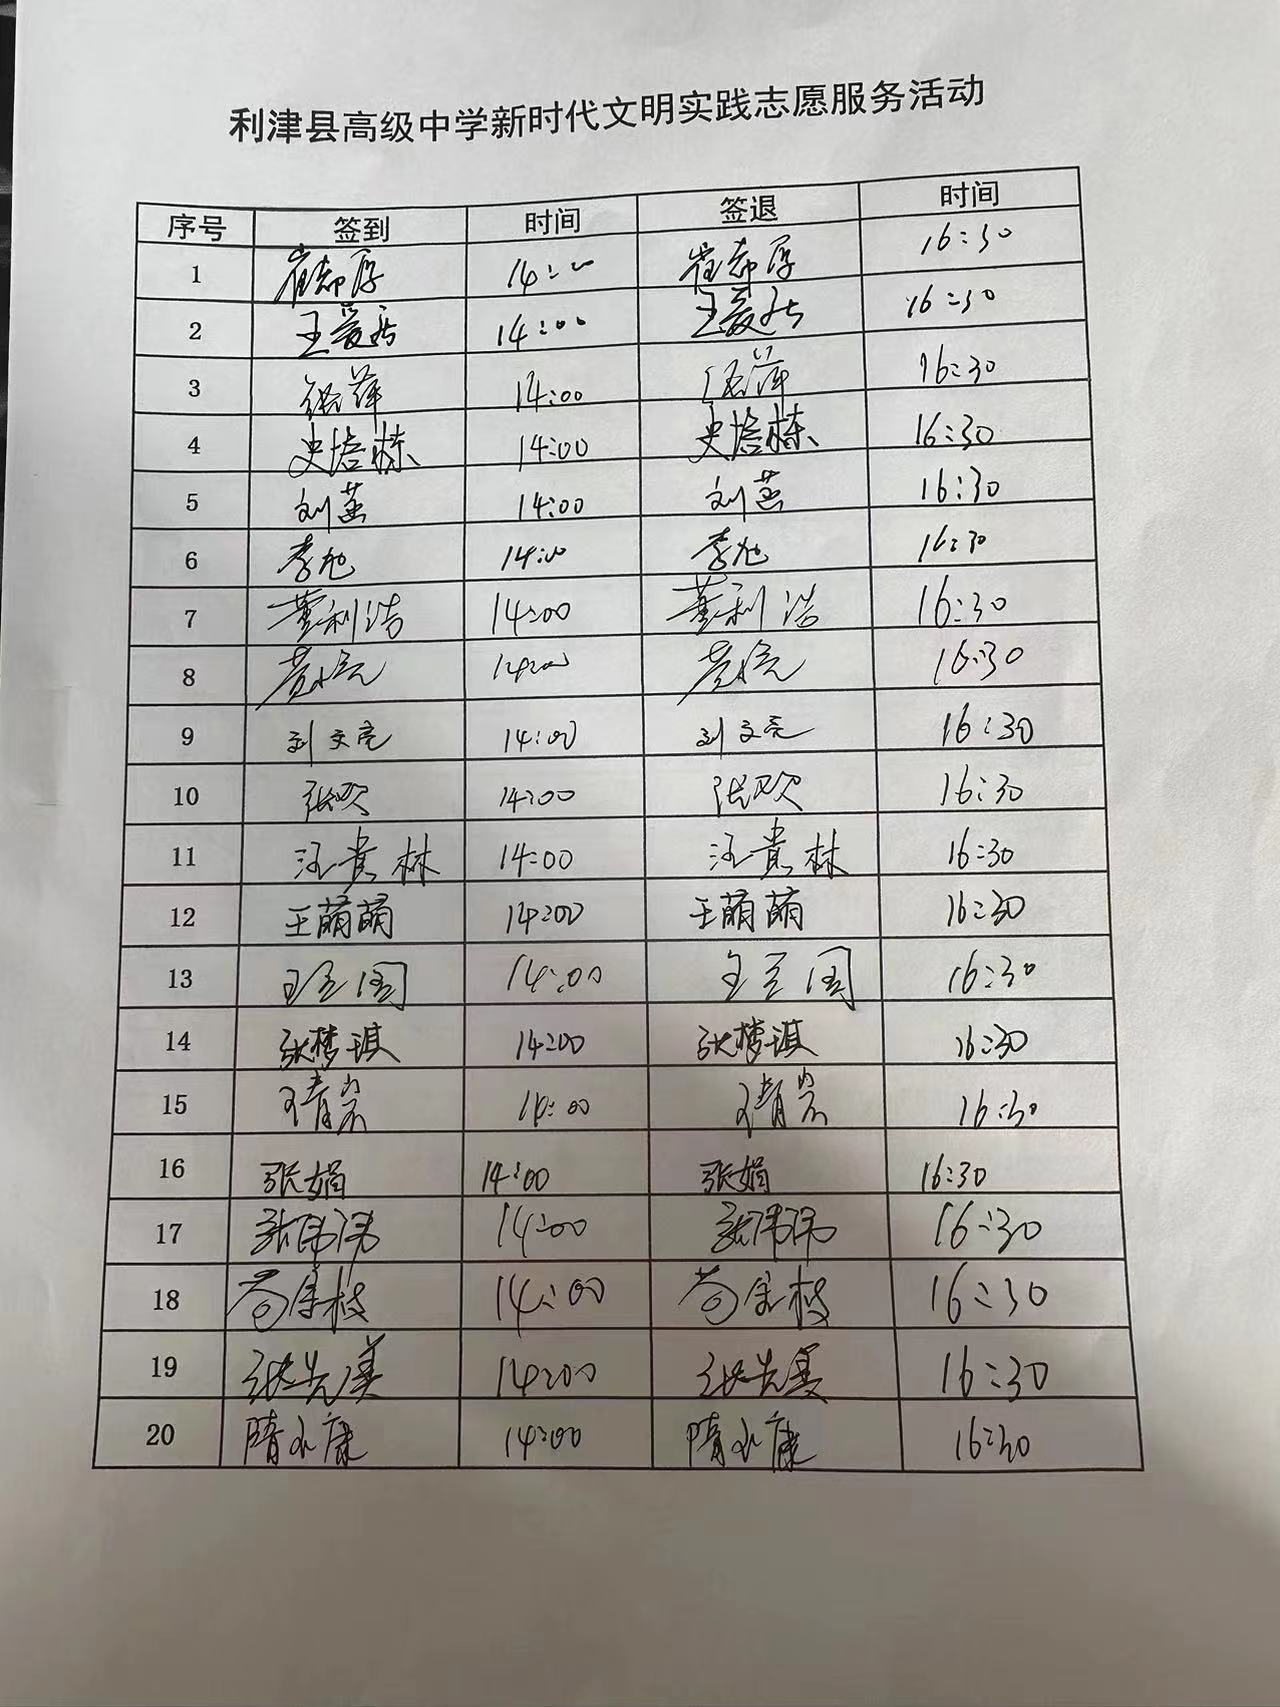 利津县高级中学新时代文明实践志愿服务活动
序号 签到 时间 签退 时间
1 崔志厚 14:00 崔志厚 16:30
2 王爱 14:00 王爱 16:30
3 萍 14:00 萍 16:30
4 史培栋 14:00 史培栋 16:30
5 刘 14:00 刘 16:30
6 李旭 14:00 李旭 16:30
7 董利浩 14:00 董利浩 16:30
8 14:00 16:30
9 刘文亮 14:00 刘文亮 16:30
10 张欢 14:00 张欢 16:30
11 汪贵林 14:00 汪贵林 16:30
12 王萌萌 14:00 王萌萌 16:30
13 王立国 14:00 王立国 16:30
14 张梦琪 14:00 张梦琪 16:30
15 王清岩 14:00 王清岩 16:30
16 张娟 14:00 张娟 16:30
17 张伟伟 14:00 张伟伟 16:30
18 苟金枝 14:00 苟金枝 16:30
19 张先美 14:00 张先美 16:30
20 隋永康 14:00 隋永康 16:30